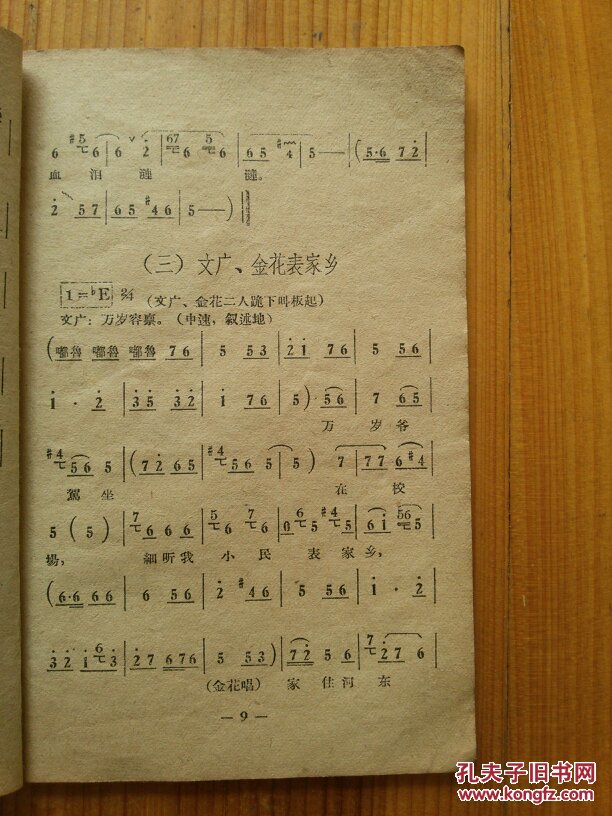 6 #5 6 | 6 2 | 67 6 5 6 | 65 #4 | 5 — | (5·6 72 |
血 泪 涟 涟。
2 57 | 65 #46 | 5 — )
(三) 文广、金花表家乡
1=♭E 2/4 (文广、金花二人跪下叫板起)
文广：万岁容禀。(中速，叙述地)
(嘟噜 嘟噜 嘟噜 76 | 5 53 | 21 76 | 5 56 |
1 · 2 | 35 32 | 1 76 | 5) 56 | 7 65 |
万 岁爷
#4 56 5 | (72 65 | #4 56 5 | 5) 7 | 77 6#4 |
驾 坐 在 校
5 (5) | 7 6 6 6 | 5 6 7 6 | 0 6 5 #4 5 | 61 56 5 |
场， 细听我 小 民 表 家 乡，
(6·6 66 | 6 56 | 2 #46 | 5 56 | 1 · 2 |
32 1 6 3 | 27 676 | 5 53) | 72 56 | 7 27 6 |
(金花唱) 家 住 河 东
— 9 —
孔夫子旧书网
www.kongfz.com